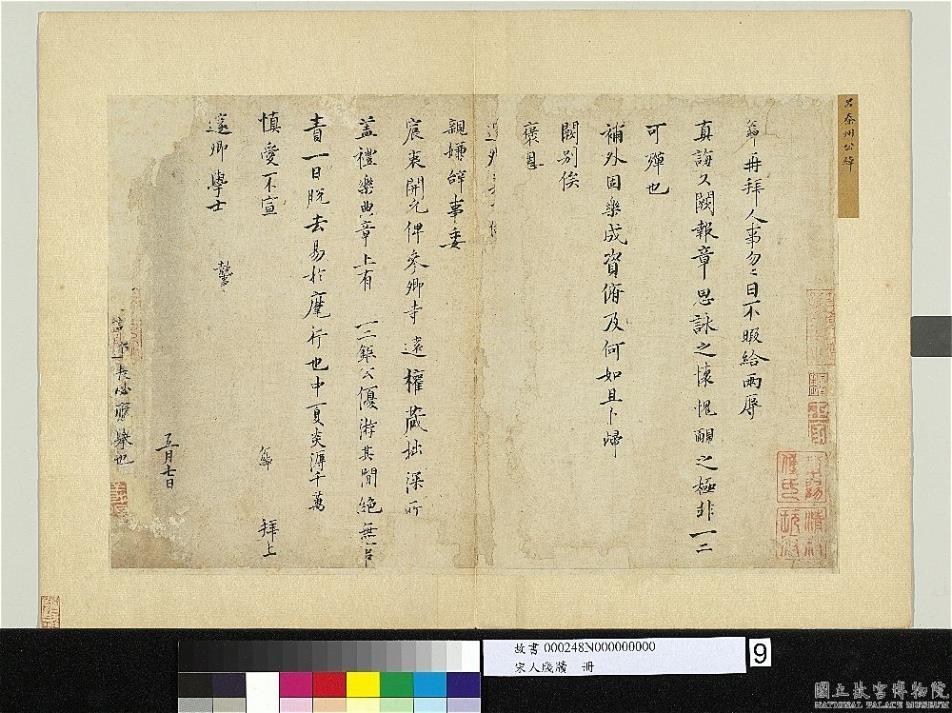 再拜人事匆匆日不暇給兩辱
真誨久闕報章思詠之懷愧靦之極非一二
可殫也
補外固樂成資俯及何如且卜歸
闕別俟
褒恩
親嫌辭事委
宸衷開允俾參卿寺遠權藏拙深所
蓋禮樂典章上有一二鉅公優游其間絕無吝
責一日脫去易於麾行也中夏炎溽千萬
慎愛不宣 拜上
遂卿學士
五月七日
呂秦州公緯
故書 000248N000000000
宋人牋牘 冊
9
國立故宮博物院
NATIONAL PALACE MUSEUM